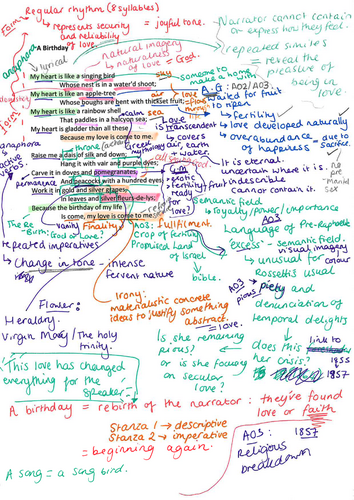 Regular rhythm (8 syllables)
Form
represents security = joyful tone.
and reliability
of love.
Narrator cannot contain
or express how they feel.
A Birthday
anaphora
lyrical
natural imagery
naturalness
of love = God.
repeated similes
= reveal the
pleasure of
being in
love.
My heart is like a singing bird
sky
Whose nest is in a water'd shoot;
someone to
make a home
with
A.G: AO2/AO3
My heart is like an apple-tree
air
love
Whose boughs are bent with thickset fruit;
waited for fruit
to ripen
My heart is like a rainbow shell
calm
sea
fertility
That paddles in a halcyon sea;
Love
is transcendent
covers
earth
love developed naturally
My heart is gladder than all these
overabundance = due to
of happiness sacrifice.
Because my love is come to me.
throne (active)
Greek
mythology
anaphora
active
Raise me a dais of silk and down;
Hang it with vair and purple dyes;
It is eternal
uncertain where it is.
indescribable
cannot contain it.
no
pre
marital
sex
Carve it in doves and pomegranates,
exotic
fertility
ready
for
love?
permanence
And peacocks with a hundred eyes;
fruit
Work it in gold and silver grapes,
Semantic field
royalty/power/importance
In leaves and silver fleurs-de-lys;
Because the birthday of my life
Is come, my love is come to me.
AO3
Language of Pre-Raphaelite
vanity
Finality
AO3:
fulfillment.
God or love?
crop of fertility
Promised Land
of Israel
'excess' - semantic field.
visual imagery
colour
unusual for
Rossetti's usual
piety and
denunciation of
temporal delights
repeated imperatives
Change in tone - intense
fervent nature
bible
AO3
pious
Irony:
materialistic concrete
ideas to justify something
abstract.
= love.
Flower:
Heraldry.
Virgin Mary/The holy
trinity.
Is she remaining
pious?
or is she focusing
on secular
love?
does this link to
her crisis? 1855
1857
This love has changed
everything for the
speaker
A birthday = rebirth of the narrator: they've found
love or faith
Stanza 1 → descriptive
Stanza 2 → imperative
= beginning again.
AO3: 1857
Religious
breakdown
A song = a song bird.